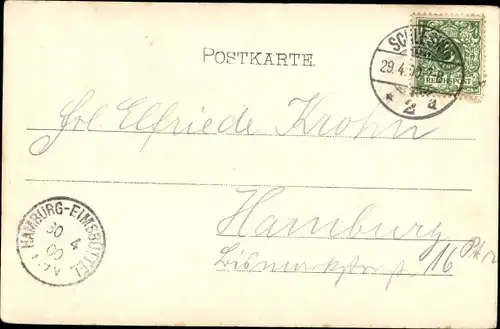 POSTKARTE.
SCHLESWIG
29.4.00
* 2 a
5
REICHSPOST
Frl. Elfriede Krohn
HAMBURG-EIMSBÜTTEL
30 4
00
Hamburg
Bismarckstrasse 16